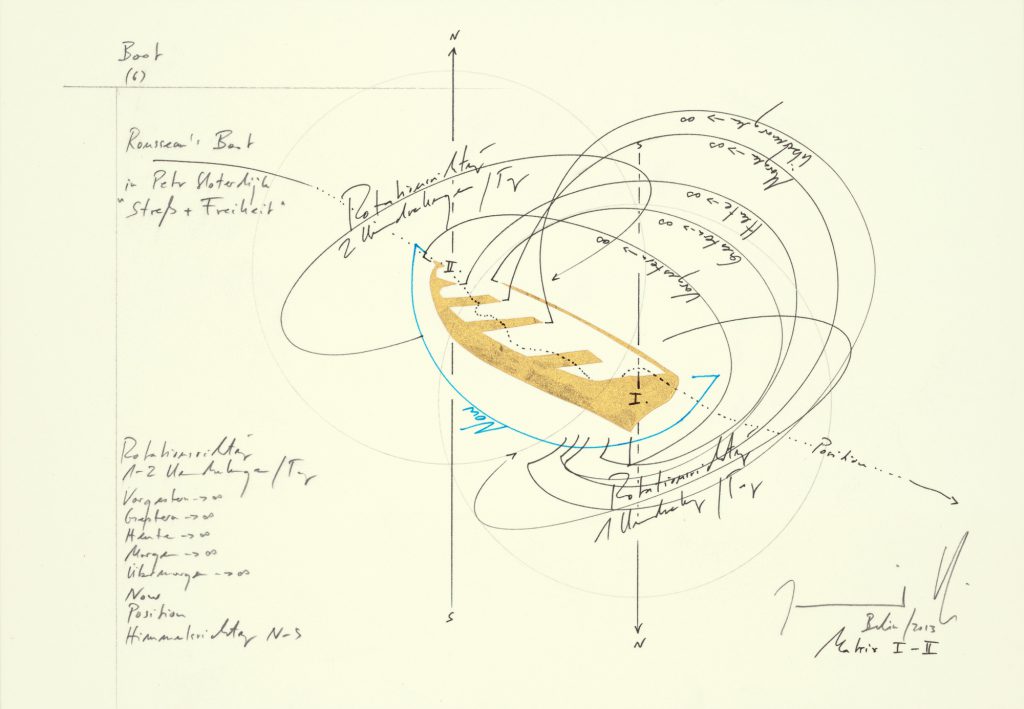 Boot
(6)
Rousseau's Boot
in Peter Sloterdijk
"Streß + Freiheit"
N
S
Rotationsrichtung
2 Umdrehungen / Tag
Übermorgen → ∞
Morgen → ∞
Heute → ∞
Gestern → ∞
Vorgestern → ∞
II.
I.
Now
Position
Rotationsrichtung
1 Umdrehung / Tag
Rotationsrichtung
1-2 Umdrehungen / Tag
Vorgestern → ∞
Gestern → ∞
Heute → ∞
Morgen → ∞
Übermorgen → ∞
Now
Position
Himmelsrichtung N-S
S
N
Berlin / 2013
Matrix I - II